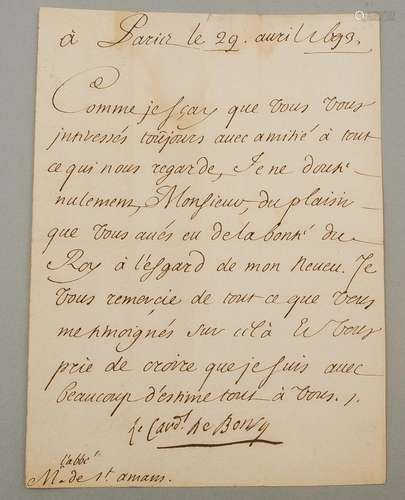 à Paris le 29. avril 1693.
Comme je sçay que vous vous
interessés toujours avec amitié à tout
ce qui nous regarde, Je ne doute
nulement, Monsieur, du plaisir
que vous avés eu de la bonté du
Roy à l'esgard de mon neveu. Je
vous remercie de tout ce que vous
me temoignés sur cela Et vous
prie de croire que je suis avec
beaucoup d'estime tout à vous.
le Card. de Bonsy
l'abbé
Mr. de St amans.